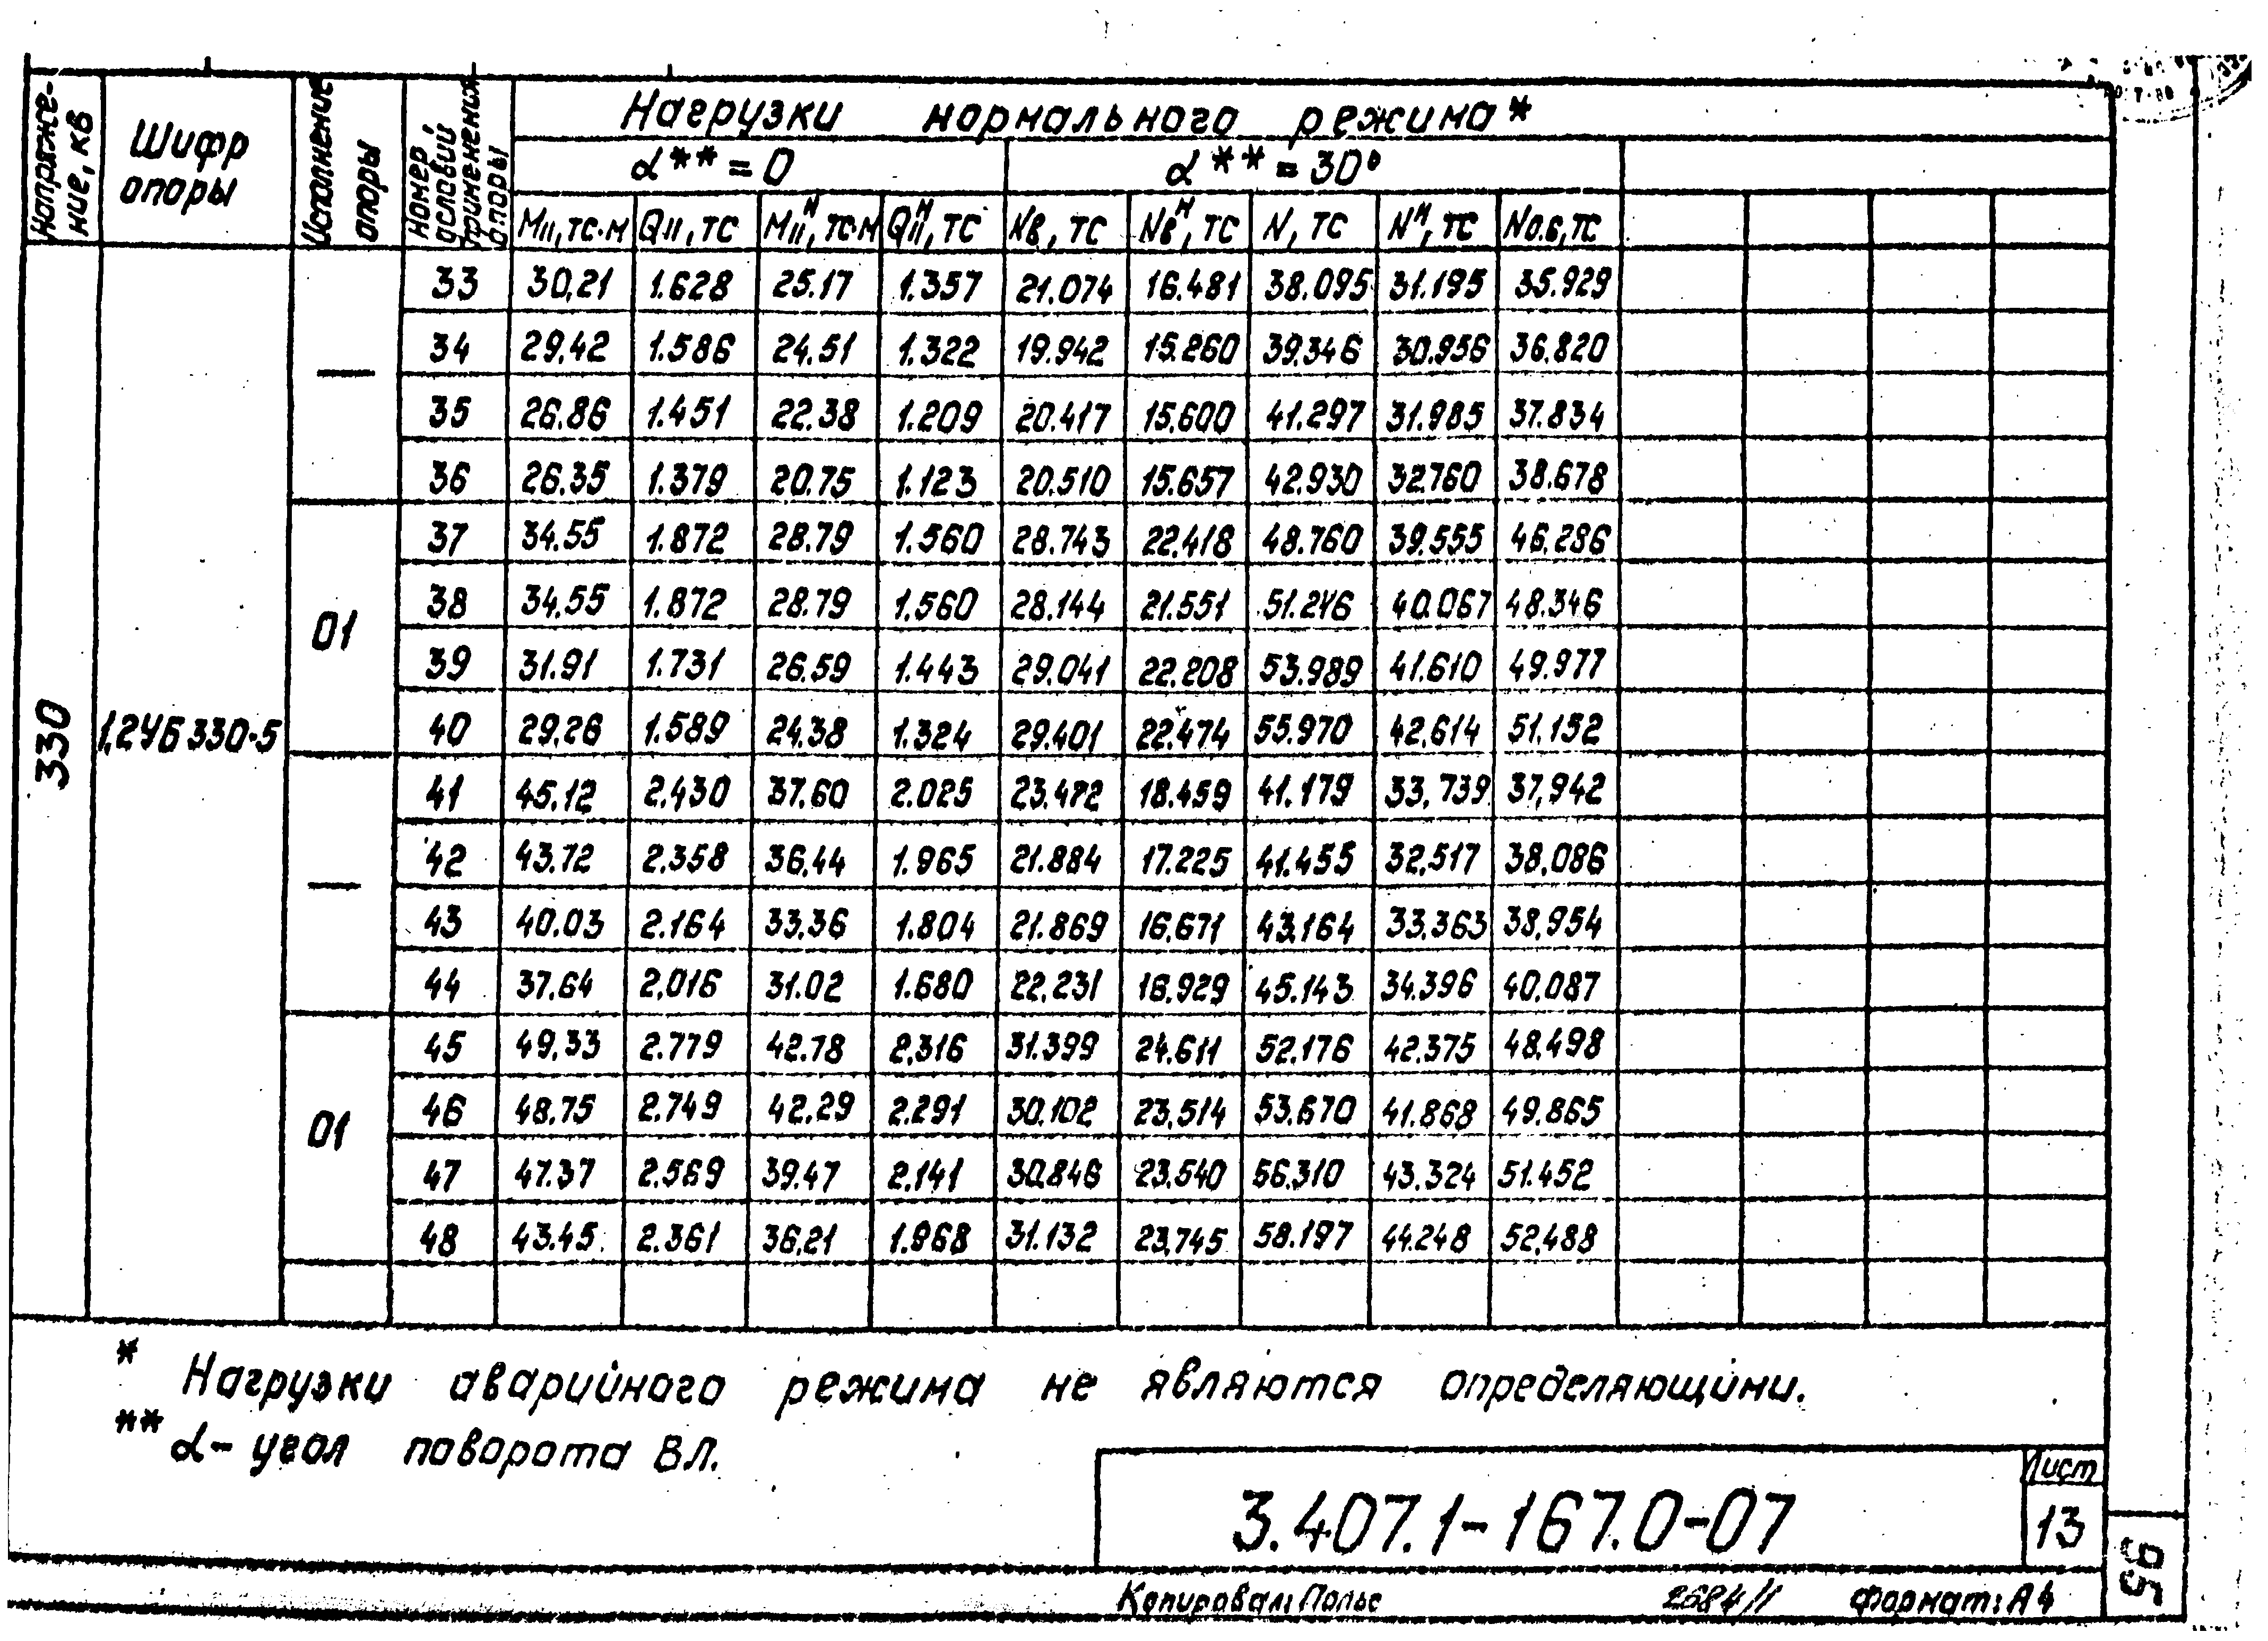 Напряже-
ние, кв
Шифр
опоры
Исполнение
опоры
Номер
условий
применения
опоры
Нагрузки нормального режима*
α** = 0
α** = 30°
MII, тс·м QII, тс MIIᴹ, тс·м QIIᴹ, тс Nв, тс Nвᴹ, тс N, тс Nᴹ, тс N0.6, тс
33 30,21 1.628 25.17 1.357 21.074 16.481 38.095 31.195 35.929
34 29.42 1.586 24.51 1.322 19.942 15.260 39.346 30.956 36.820
—
35 26.86 1.451 22.38 1.209 20.417 15.600 41.297 31.985 37.834
36 26.35 1.379 20.75 1.123 20.510 15.657 42.930 32.760 38.678
37 34.55 1.872 28.79 1.560 28.743 22.418 48.760 39.555 46.286
38 34.55 1.872 28.79 1.560 28.144 21.551 51.246 40.067 48.346
01
39 31.91 1.731 26.59 1.443 29.041 22.208 53.989 41.610 49.977
330 1,2УБ330-5
40 29.26 1.589 24.38 1.324 29.401 22.474 55.970 42.614 51.152
41 45.12 2.430 37.60 2.025 23.472 18.459 41.179 33.739 37,942
42 43.72 2.358 36.44 1.965 21.884 17.225 41.455 32.517 38.086
—
43 40.03 2.164 33.36 1.804 21.869 16.671 43.164 33.363 38,954
44 37.64 2.016 31.02 1.680 22.231 16.929 45.143 34.396 40.087
45 49.33 2.779 42.78 2.316 31.399 24.611 52.176 42.375 48.498
46 48.75 2.749 42.29 2.291 30.102 23.514 53.670 41.868 49.865
01
47 47.37 2.569 39.47 2.141 30.846 23.540 56.310 43.324 51.452
48 43.45 2.361 36.21 1.968 31.132 23.745 58.197 44.248 52.488
* Нагрузки аварийного режима не являются определяющими.
** α - угол поворота ВЛ.
3.407.1-167.0-07
Лист
13
95
Копировал: Польс 2684/1 формат: А4